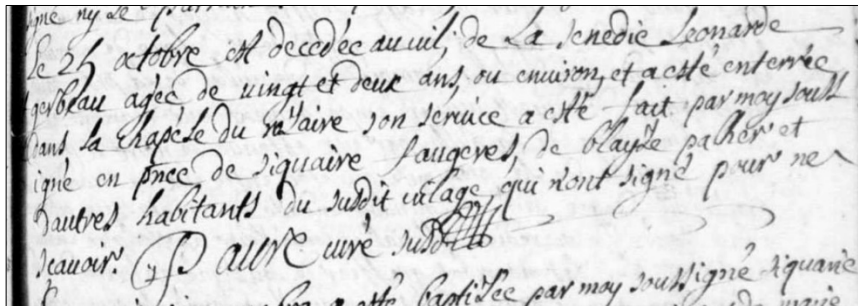 le 25 octobre est decedée au vil. de La senedie Leonarde
gerbeau agée de vingt et deux ans, ou environ, et a esté enterrée
dans la chapele du rosaire son service a esté fait par moy souss
igné en pnce de siquaire faugeres, de blayse palher et
d'autres habitants du susdit vilage qui n'ont signé pour ne
scavoir. faure curé susd
a esté baptisée par moy soussigné siquarie